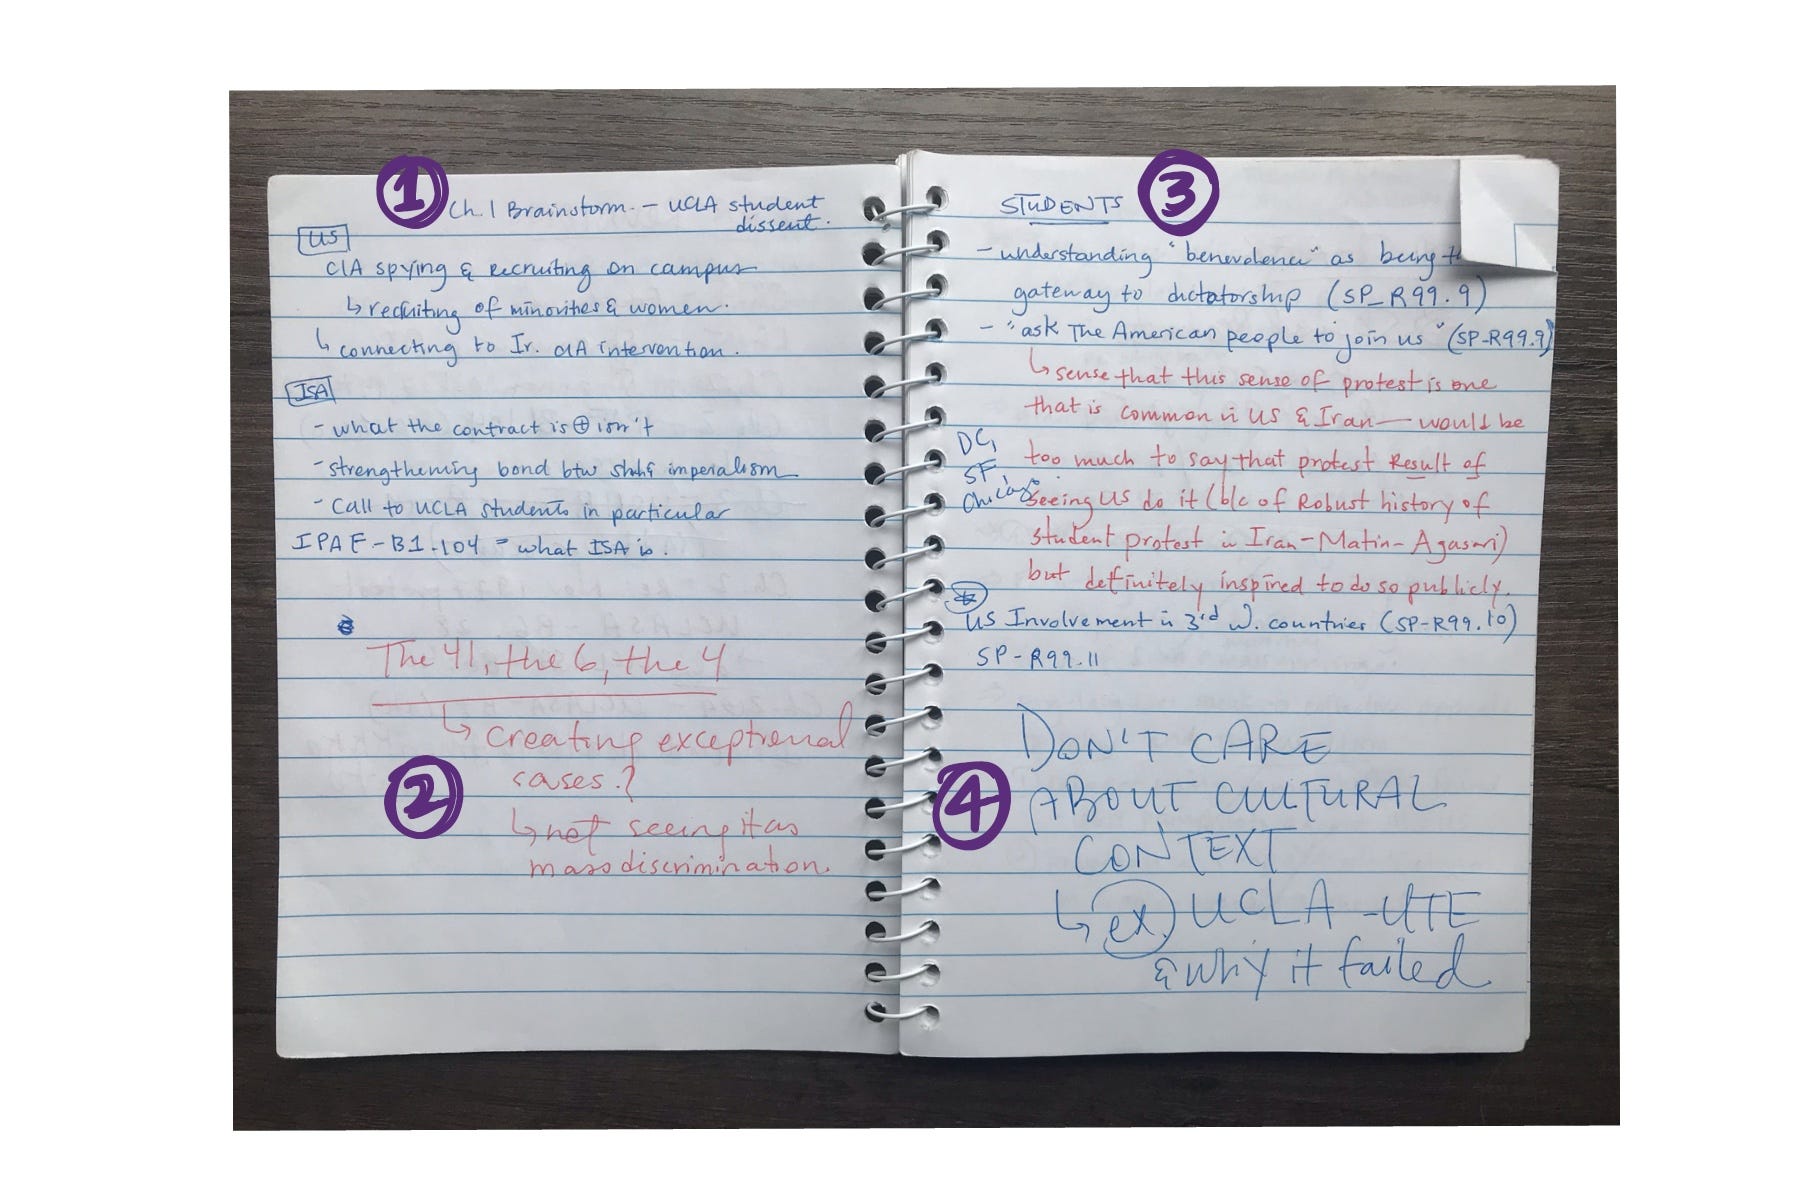 1
Ch. 1 Brainstorm. — UCLA student
dissent.
US
CIA spying & recruiting on campus
↳ recruiting of minorities & women.
↳ connecting to Ir. CIA intervention.
ISA
- what the contract is ⊕ isn't
- strengthening bond btw shah & imperialism
- Call to UCLA students in particular
IPAF-B1-104 = what ISA is.
The 41, the 6, the 4
↳ creating exceptional
cases?
2
↳ not seeing it as
mass discrimination.
STUDENTS
3
- understanding "benevolence" as being
gateway to dictatorship (SP_R99.9)
- "ask The American people to join us" (SP-R99.9)
↳ sense that this sense of protest is one
that is common in US & Iran — would be
DC,
SF,
Chicago
too much to say that protest Result of
seeing US do it (b/c of Robust history of
student protest in Iran - Matin-Asgari)
but definitely inspired to do so publicly.
US Involvement in 3rd w. countries (SP-R99.10)
SP-R99.11
DON'T CARE
4
ABOUT CULTURAL
CONTEXT
↳ ex. UCLA-UTE
& why it failed